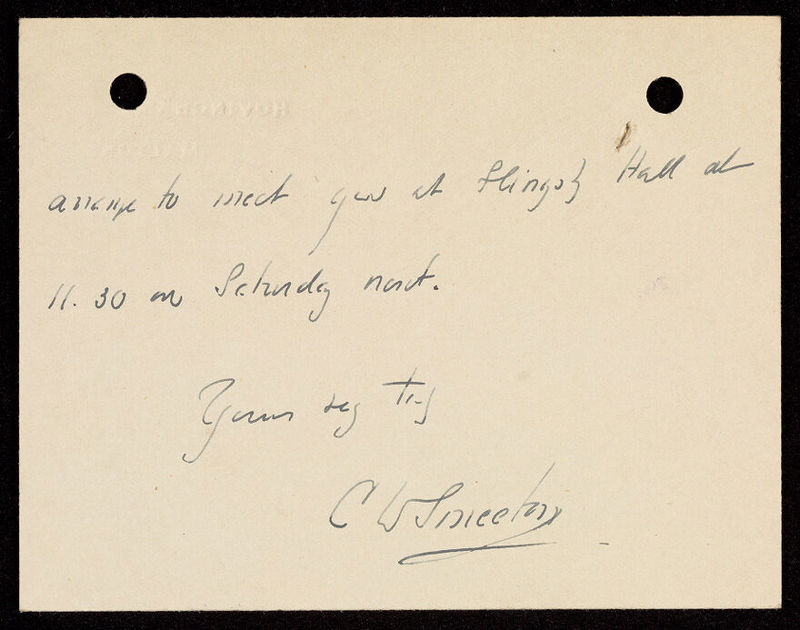 arrange to meet you at Slingsby Hall at
11.30 on Saturday next.
Yours very truly
C W Smeeton